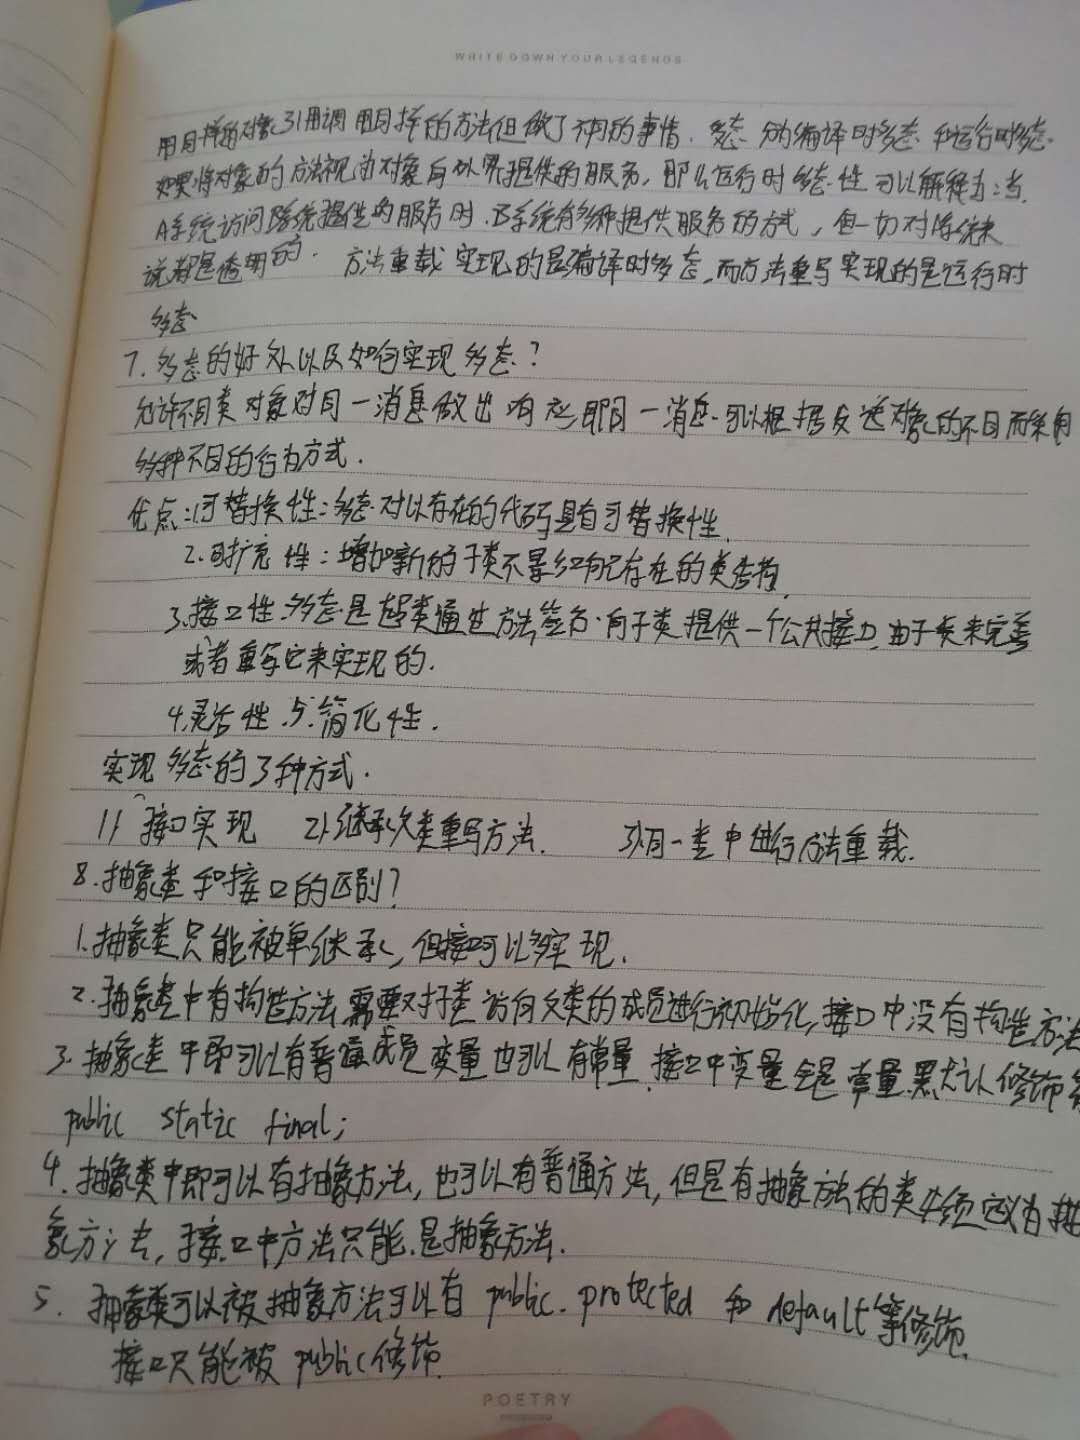 WRITE DOWN YOUR LEGENDS
用同样的对象引用调用同样的方法但做了不同的事情. 多态 分为编译时多态 和运行时多态.
如果将对象的方法视为对象向外界提供的服务, 那么运行时多态性可以解释为:当
A系统访问B系统提供的服务时.B系统有多种提供服务的方式, 但一切对A系统来
说都是透明的. 方法重载实现的是编译时多态,而方法重写实现的是运行时
多态
7. 多态的好处以及如何实现多态?
允许不同类对象对同一消息做出响应即同一消息可以根据发送对象的不同而采用
多种不同的行为方式.
优点:1.可替换性:多态对以存在的代码具有可替换性.
2.可扩充性:增加新的子类不影响已存在的类
3.接口性.多态是超类通过方法签名.向子类提供一个公共接口,由子类来完善
或者重写它来实现的.
4.灵活性.5.简化性.
实现多态的3种方式.
1) 接口实现 2)继承父类重写方法. 3)同一类中进行方法重载.
8.抽象类和接口的区别?
1.抽象类只能被单继承,但接口可以多实现.
2.抽象类中有构造方法需要对子类访问父类的成员进行初始化,接口中没有构造方法
3.抽象类中即可以有普通成员变量也可以有常量.接口中变量 是常量.默认修饰符
public static final;
4.抽象类中即可以有抽象方法,也可以有普通方法,但是有抽象方法的类必须定义为抽
象方法,接口中方法只能是抽象方法.
5.抽象类可以被抽象方法可以有public.protected和default等修饰.
接口只能被public修饰.
POETRY